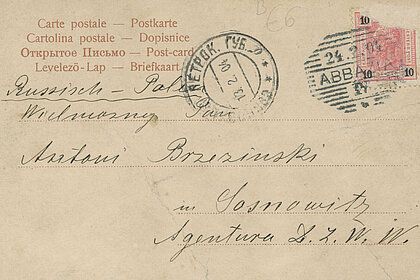 Carte postale – Postkarte
Cartolina postale – Dopisnice
Открытое Письмо – Post-card
Levelező-Lap – Briefkaart
ПЕТРОК. ГУБ.
13 2 04
10
10
10
24. 2. 04
ABBAZIA
Russisch – Polen
Wielmożny Pan
Antoni Brzezinski
in Sosnowitz
Agentura D. Ż. W. W.